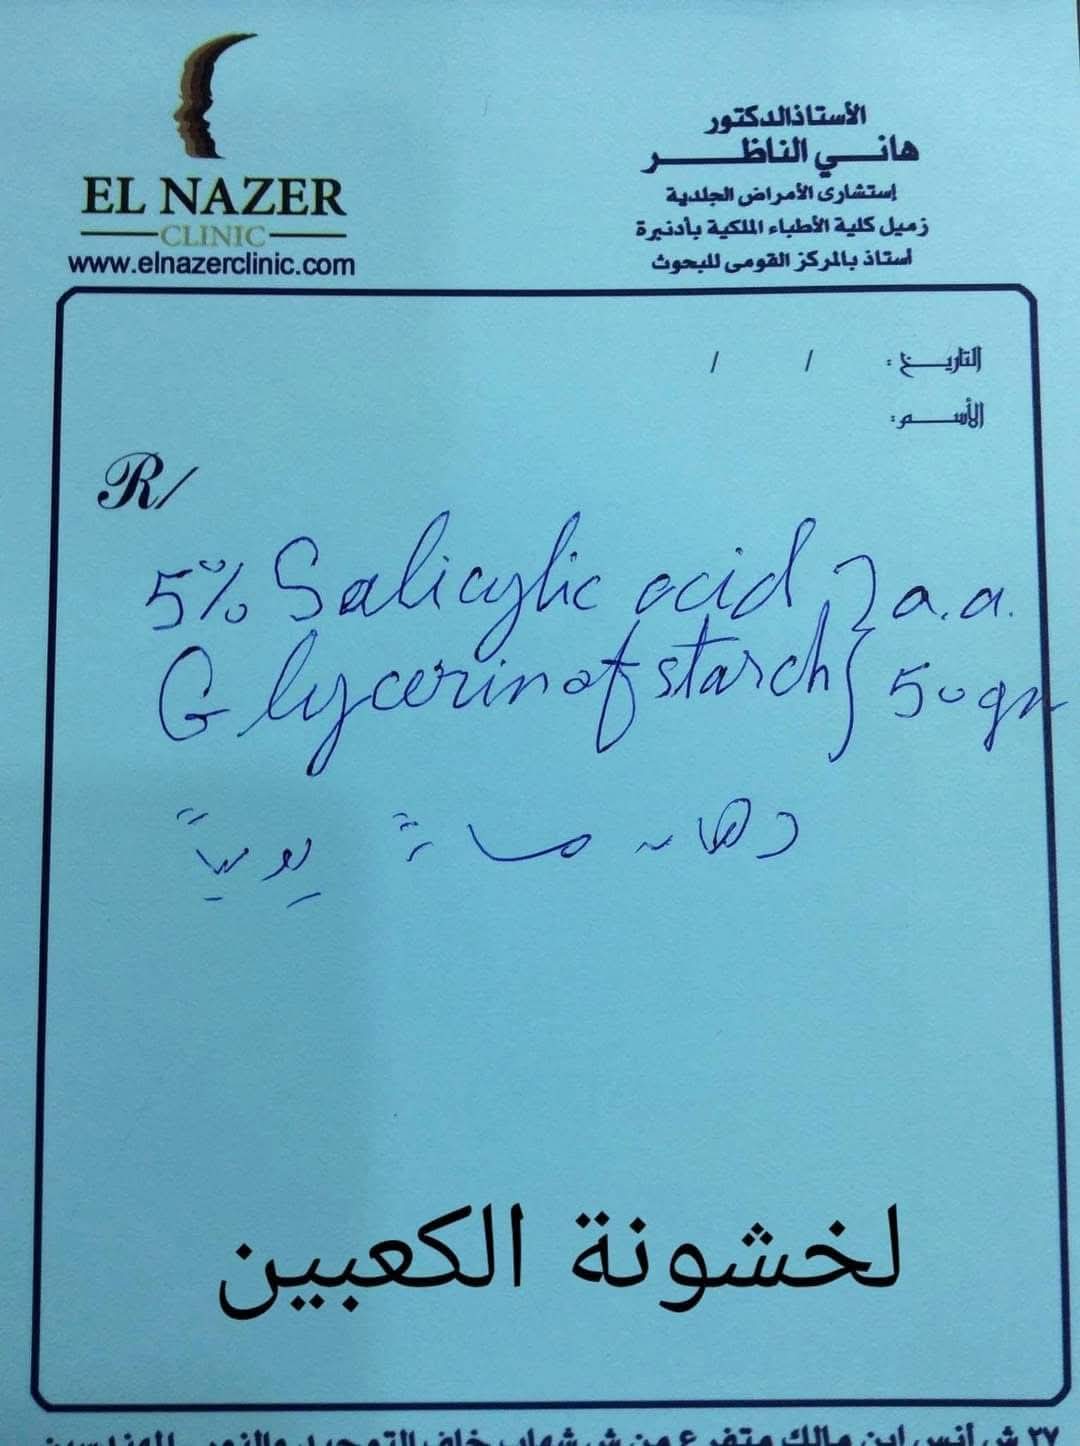 EL NAZER
CLINIC
www.elnazerclinic.com
الأستاذالدكتور
هاني الناظر
إستشارى الأمراض الجلدية
زميل كلية الأطباء الملكية بأدنبرة
أستاذ بالمركز القومى للبحوث
التاريخ : / /
الأسم:
R/
5% Salicylic acid } a.a.
Glycerin of starch } 50 gm
دهان مساءً يومياً
لخشونة الكعبين
٢٧ ش أنس ابن مالك متفرع من ش شهاب خلف التوحيد والنور - المهندسين